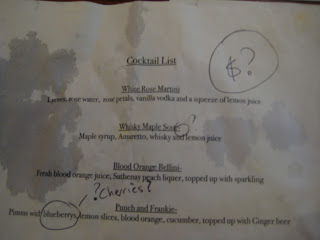 $?
Cocktail List
White Rose Martini
rose water, rose petals, vanilla vodka and a squeeze of lemon juice
Whisky Maple Sour-
?
Maple syrup, Amaretto, whisky and lemon juice
Blood Orange Bellini-
Fresh blood orange juice, peach liquer, topped up with sparkling
? Cherries?
Punch and Frankie-
Pimms with blueberrys, lemon slices, blood orange, cucumber, topped up with Ginger beer